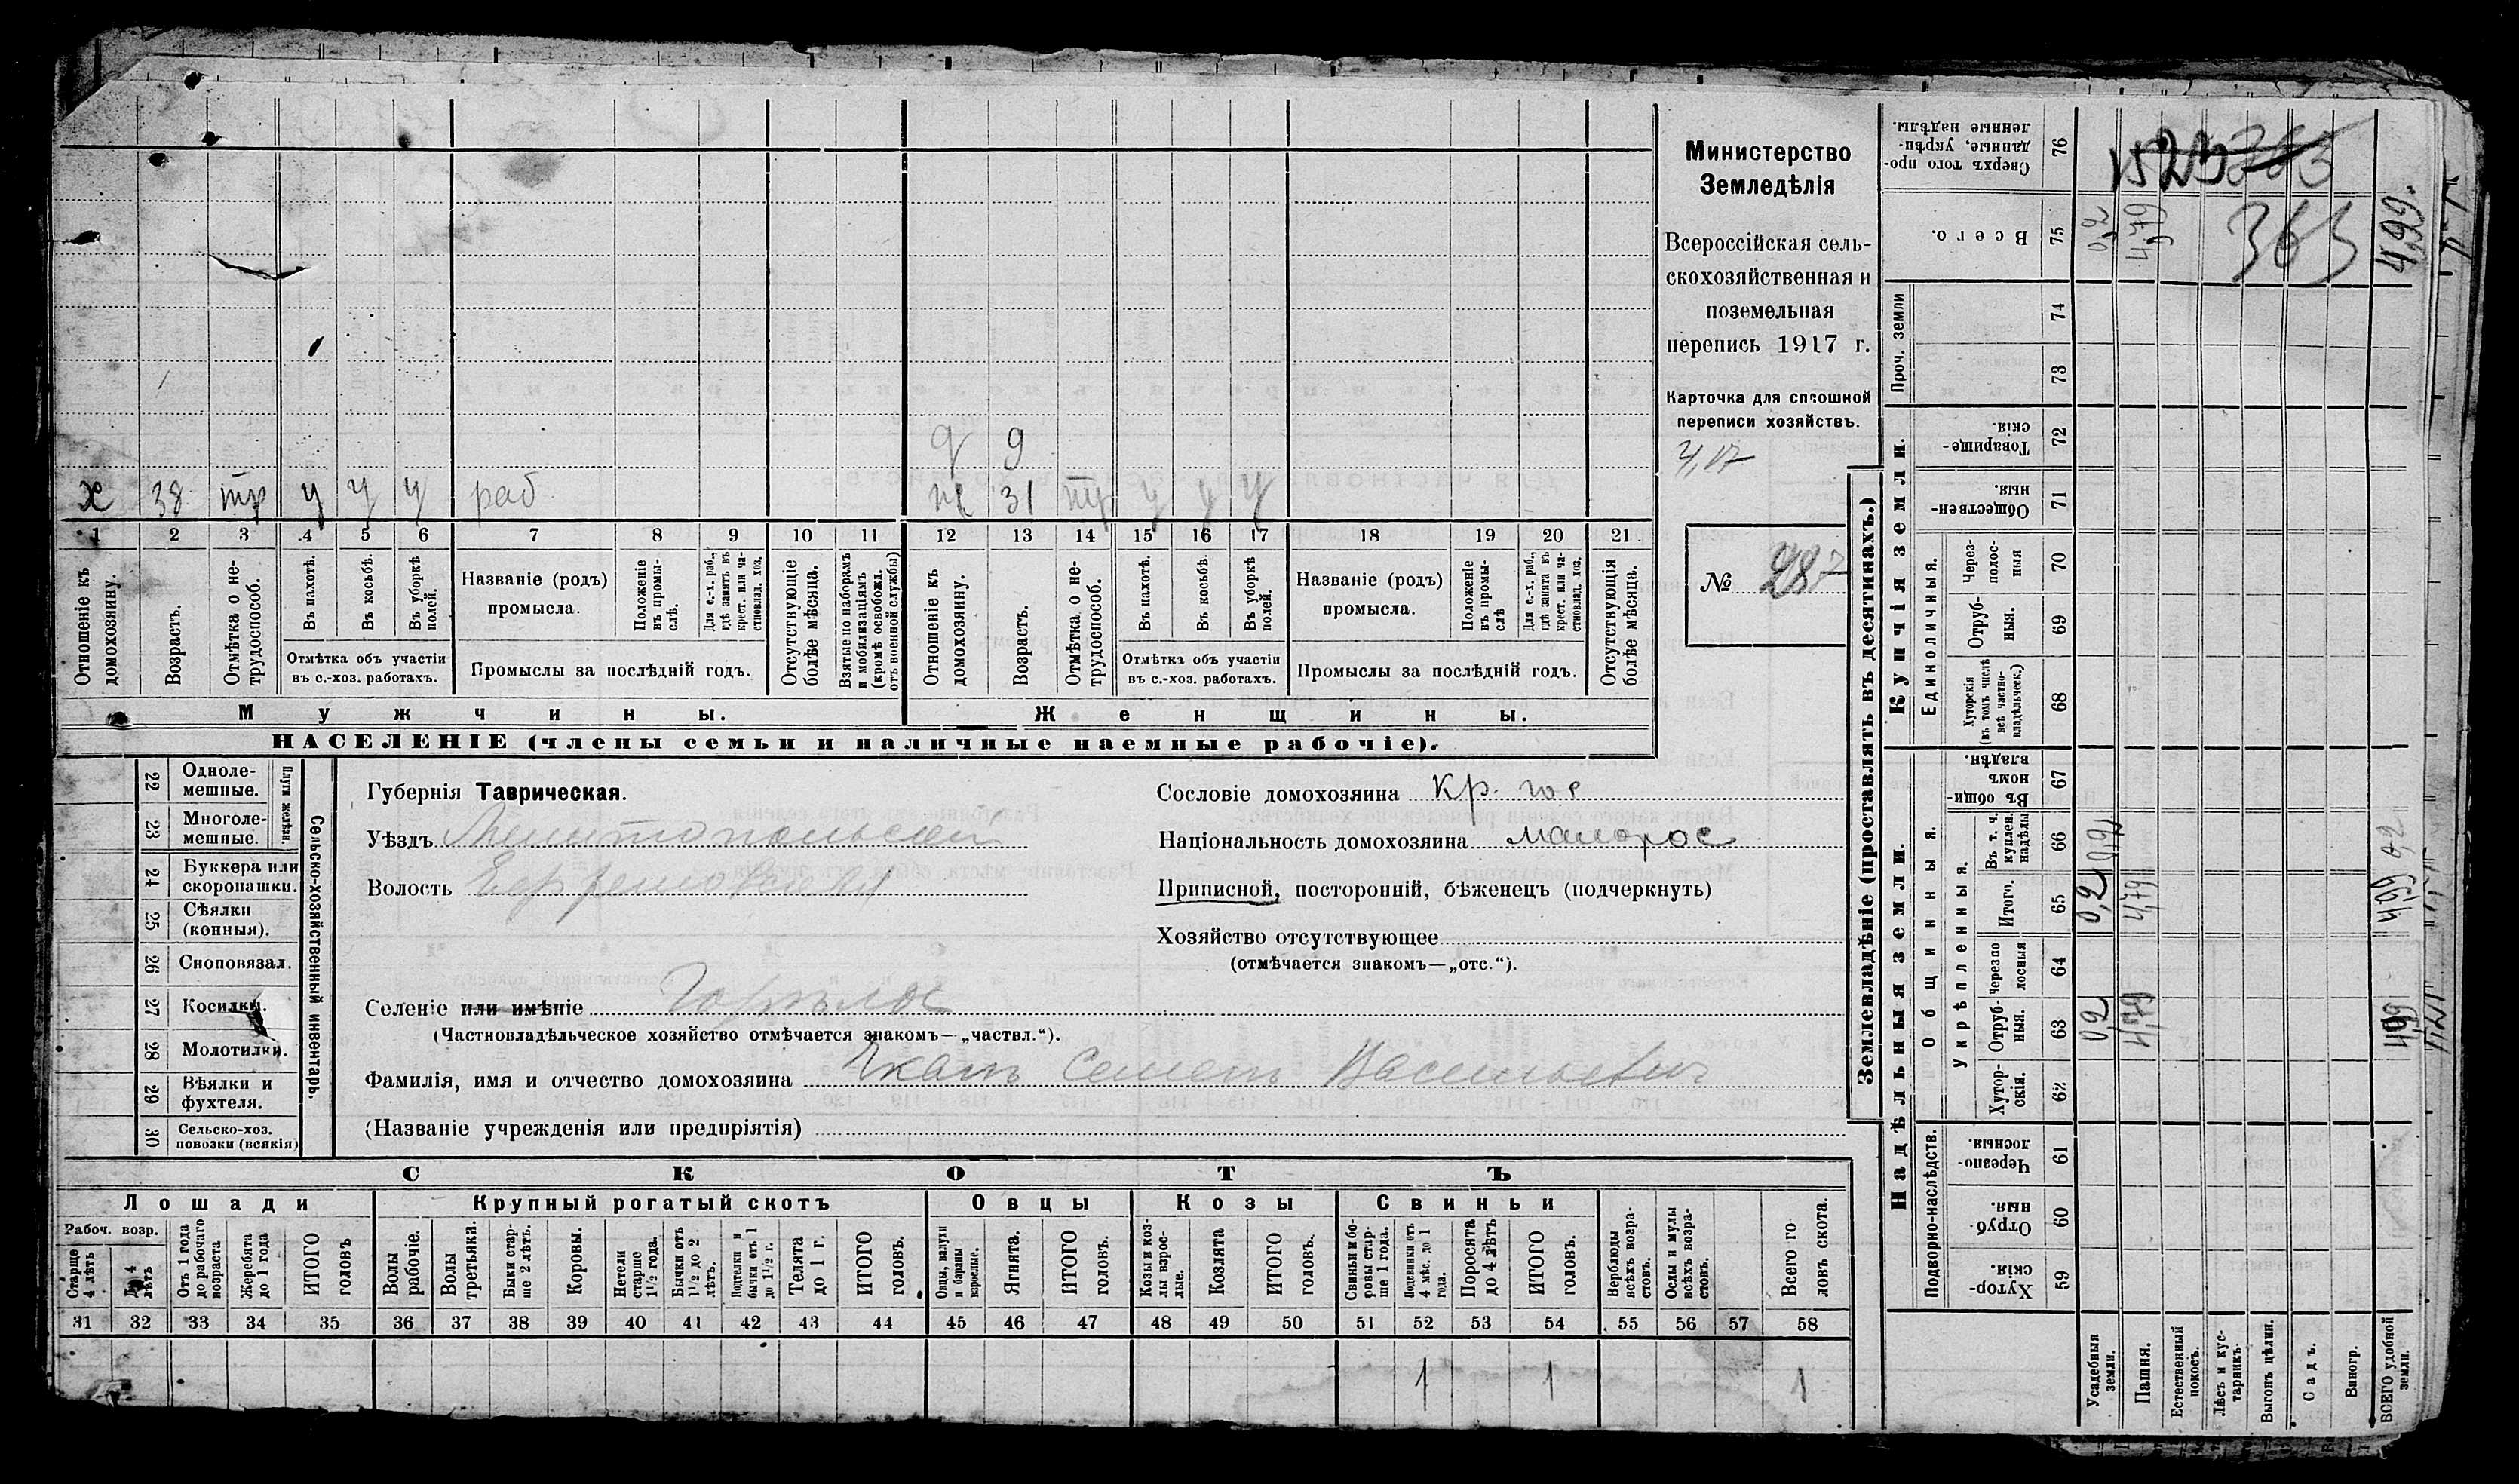 Министерство
Земледѣлія
Всероссійская сель-
скохозяйственная и
поземельная
перепись 1917 г.
Карточка для сплошной
переписи хозяйствъ.
№ 287
д 9
х 38 тр у у у раб
ж 31 тр у у у
1 2 3 4 5 6 7 8 9 10 11 12 13 14 15 16 17 18 19 20 21
Отношеніе къ домохозяину.
Возрастъ.
Отмѣтка о не-трудоспособ.
Въ пахотѣ.
Въ косьбѣ.
Въ уборкѣ полей.
Отмѣтка объ участіи въ с.-хоз. работахъ.
Названіе (родъ) промысла.
Положеніе въ промы-слѣ.
Для с.-х. раб., гдѣ занятъ въ крест. или ча-стновлад. хоз.
Промыслы за послѣдній годъ.
Отсутствующіе болѣе мѣсяца.
Взятые по наборамъ и мобилизаціямъ (кромѣ освобожд. отъ военной службы)
Отношеніе къ домохозяину.
Возрастъ.
Отмѣтка о не-трудоспособ.
Въ пахотѣ.
Въ косьбѣ
Въ уборкѣ полей.
Отмѣтка объ участіи въ с.-хоз. работахъ.
Названіе (родъ) промысла.
Положеніе въ промы-слѣ
Для с.-х. раб., гдѣ занята въ крест. или ча-стновлад. хоз.
Промыслы за послѣдній годъ.
Отсутствующія болѣе мѣсяца.
Мужчины.
Женщины.
НАСЕЛЕНІЕ (члены семьи и наличные наемные рабочіе).
Сельско-хозяйственный инвентарь.
Плуги желѣзн.
22 Одноле-мешные.
23 Многоле-мешные.
24 Буккера или скоропашки.
25 Сѣялки (конныя).
26 Сноповязал.
27 Косилки.
28 Молотилки.
29 Вѣялки и фухтеля.
30 Сельско-хоз. повозки (всякія)
Губернія Таврическая.
Уѣздъ Мелитопольскій
Волость Ефремовская
Селеніе или имѣніе
(Частновладѣльческое хозяйство отмѣчается знакомъ—„частвл.“).
Фамилія, имя и отчество домохозяина Семенъ Васильевич
(Названіе учрежденія или предпріятія)
Сословіе домохозяина кр. гос
Національность домохозяина малорос
Приписной, посторонній, бѣженецъ (подчеркнуть)
Хозяйство отсутствующее
(отмѣчается знакомъ—„отс.“).
СКОТЪ
Лошади
Крупный рогатый скотъ
Овцы
Козы
Свиньи
Рабоч. возр.
Старше 4 лѣтъ
До 4 лѣтъ
Отъ 1 года до рабочаго возраста
Жеребята до 1 года
ИТОГО головъ
Волы рабочіе.
Волы третьяки.
Быки стар-ше 2 лѣтъ.
Коровы.
Нетели старше 1½ года.
Бычки отъ 1½ до 2 лѣтъ.
Подтелки и бычки отъ 1 до 1½ г.
Телята до 1 г.
ИТОГО головъ.
Овцы, валухи и бараны взрослые.
Ягнята.
ИТОГО головъ.
Козы и коз-лы взрос-лые.
Козлята
ИТОГО головъ.
Свиньи и бо-ровы стар-ше 1 года.
Подсвинки отъ 4 мѣс. до 1 года.
Поросята до 4 лѣтъ
ИТОГО головъ.
Верблюды всѣхъ возра-стовъ.
Ослы и мулы всѣхъ возра-стовъ.
Всего го-ловъ скота.
31 32 33 34 35 36 37 38 39 40 41 42 43 44 45 46 47 48 49 50 51 52 53 54 55 56 57 58
1 1 1
Землевладѣніе (проставлять въ десятинахъ.)
Надѣльныя земли.
Купчія земли.
Проч. земли
Подворно-наслѣдств.
Общинныя.
Укрѣпленныя.
Единоличныя.
59 Хутор-скія.
60 Отруб-ныя.
61 Черезпо-лосныя.
62 Хутор-скія.
63 Отруб-ныя. 0,2 4,79 4,99
64 Черезпо-лосныя
65 Итого. 0,2 4,79 4,99
66 Въ т. ч. куплен. надѣлы
67 Въ общи-номъ владѣн.
68 Хуторскія (въ томъ числѣ всѣ частно-владѣльческ.)
69 Отруб-ныя.
70 Через-полос-ныя
71 Обществен-ныя.
72 Товарище-скія.
73
74
75 Всего. 0,2 4,79 4,99
76 Сверхъ того про-данные, укрѣп-ленные надѣлы.
363
Усадебныя земли.
Пашня.
Естественный покосъ.
Лѣсъ и кус-тарникъ.
Выгонъ цѣлин.
Садъ.
Виногр.
ВСЕГО удобной земли.